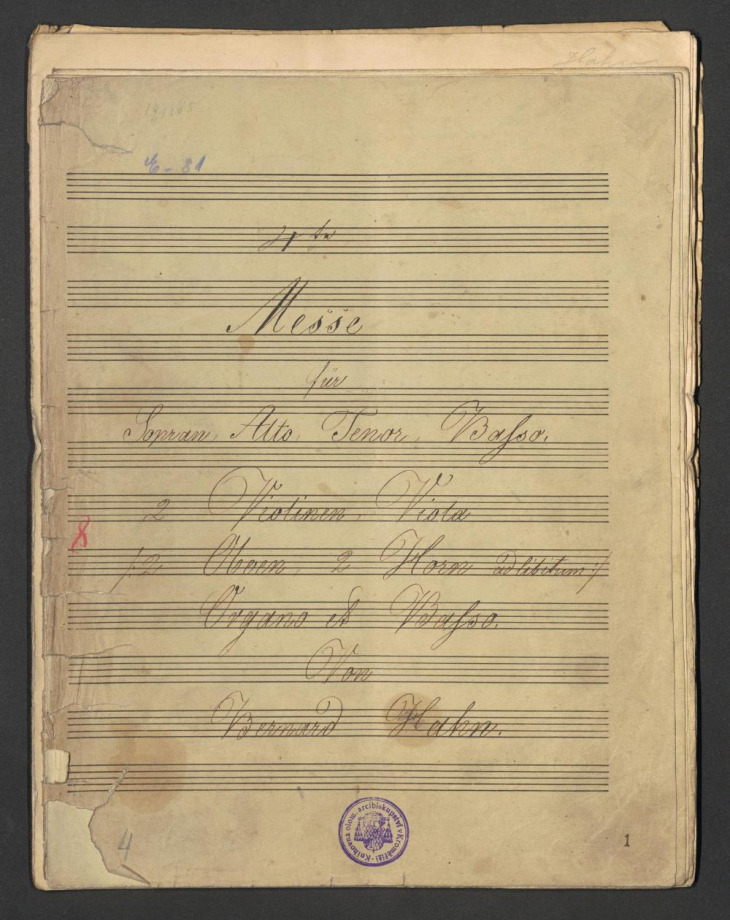 Hahn
E-81
4te
Messe
für
Sopran, Alto, Tenor, Basso.
2 Violinen, Viola
/:2 Oboen, 2 Horn ad libitum:/
8
Organo et Basso.
Von
Bernard Hahn.
Knihovna olom. arcibiskupství v Kroměříži
4
1